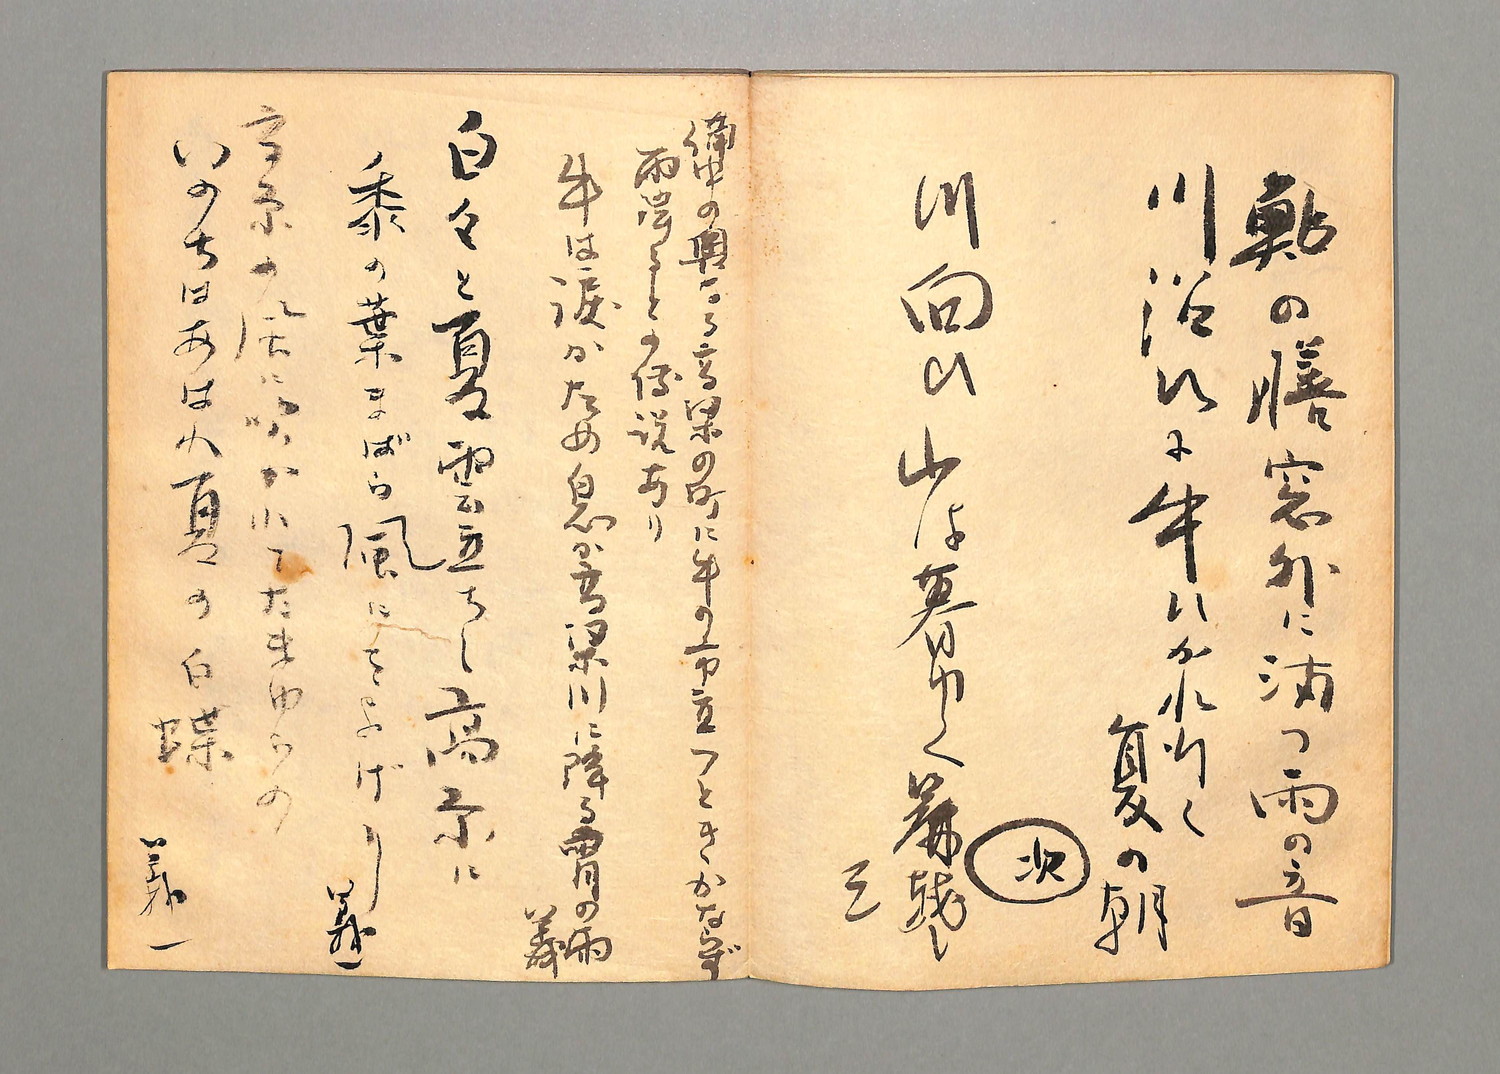 鮎の膳窓外に満つ雨の音
川沿ひに牛ひかれ行く
夏の朝
次
川向ひ山は暮ゆく
三
備中の奥なる高梁の町に牛の市立つときかならず
雨降るとの傳説あり
牛は涙かため息か高梁川に降る宵の雨
義
白々と夏雲立ちし高原に
黍の葉まばら風にそよげり
義一
高原の風に吹かれてたまゆらの
いのちはあはれ夏の白蝶
義一